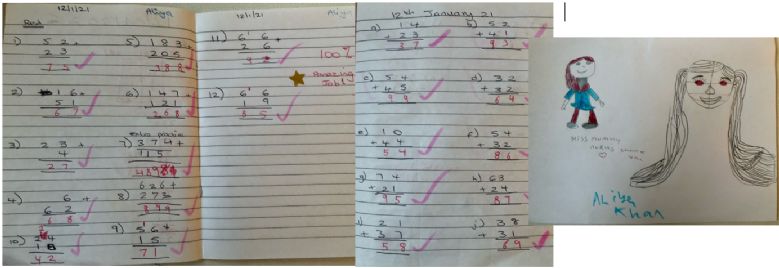 12/1/21 Aliya
Red
1) 52 +
23
75
2) 16 +
51
67
3) 23 +
4
27
4) 6 +
62
68
10)
42
5) 183 +
205
388
6) 147 +
121
268
extra practice
7) 374 +
115
8) 626 +
273
9) 56 +
15
71
12/1/21 Aliya
11) 66 +
26
92
100%
Amazing
Job!
12)
19
12th January 21
a) 14
+ 23
37
b) 52
+ 41
93
c) 54
+ 45
99
d) 32
+ 32
64
e) 10
+ 44
54
f) 54
+ 32
86
g) 74
+ 21
95
h) 63
+ 24
87
i) 21
+ 37
58
j) 38
+ 31
69
Miss mummy
Aliya
Khan